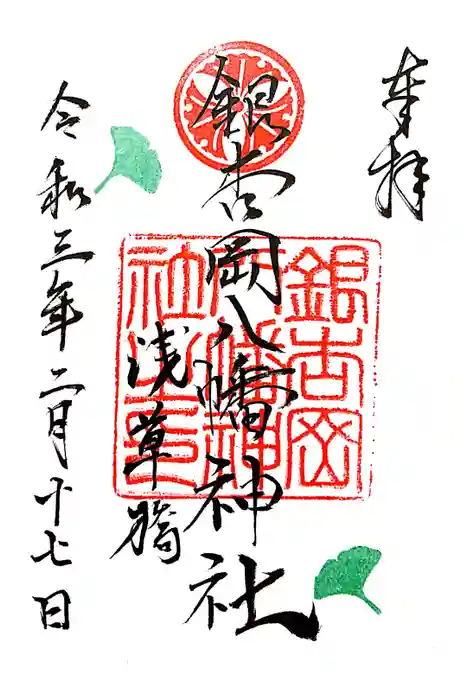 奉拝
銀杏岡八幡神社
浅草橋
令和三年二月十七日
銀杏岡
八幡神
社